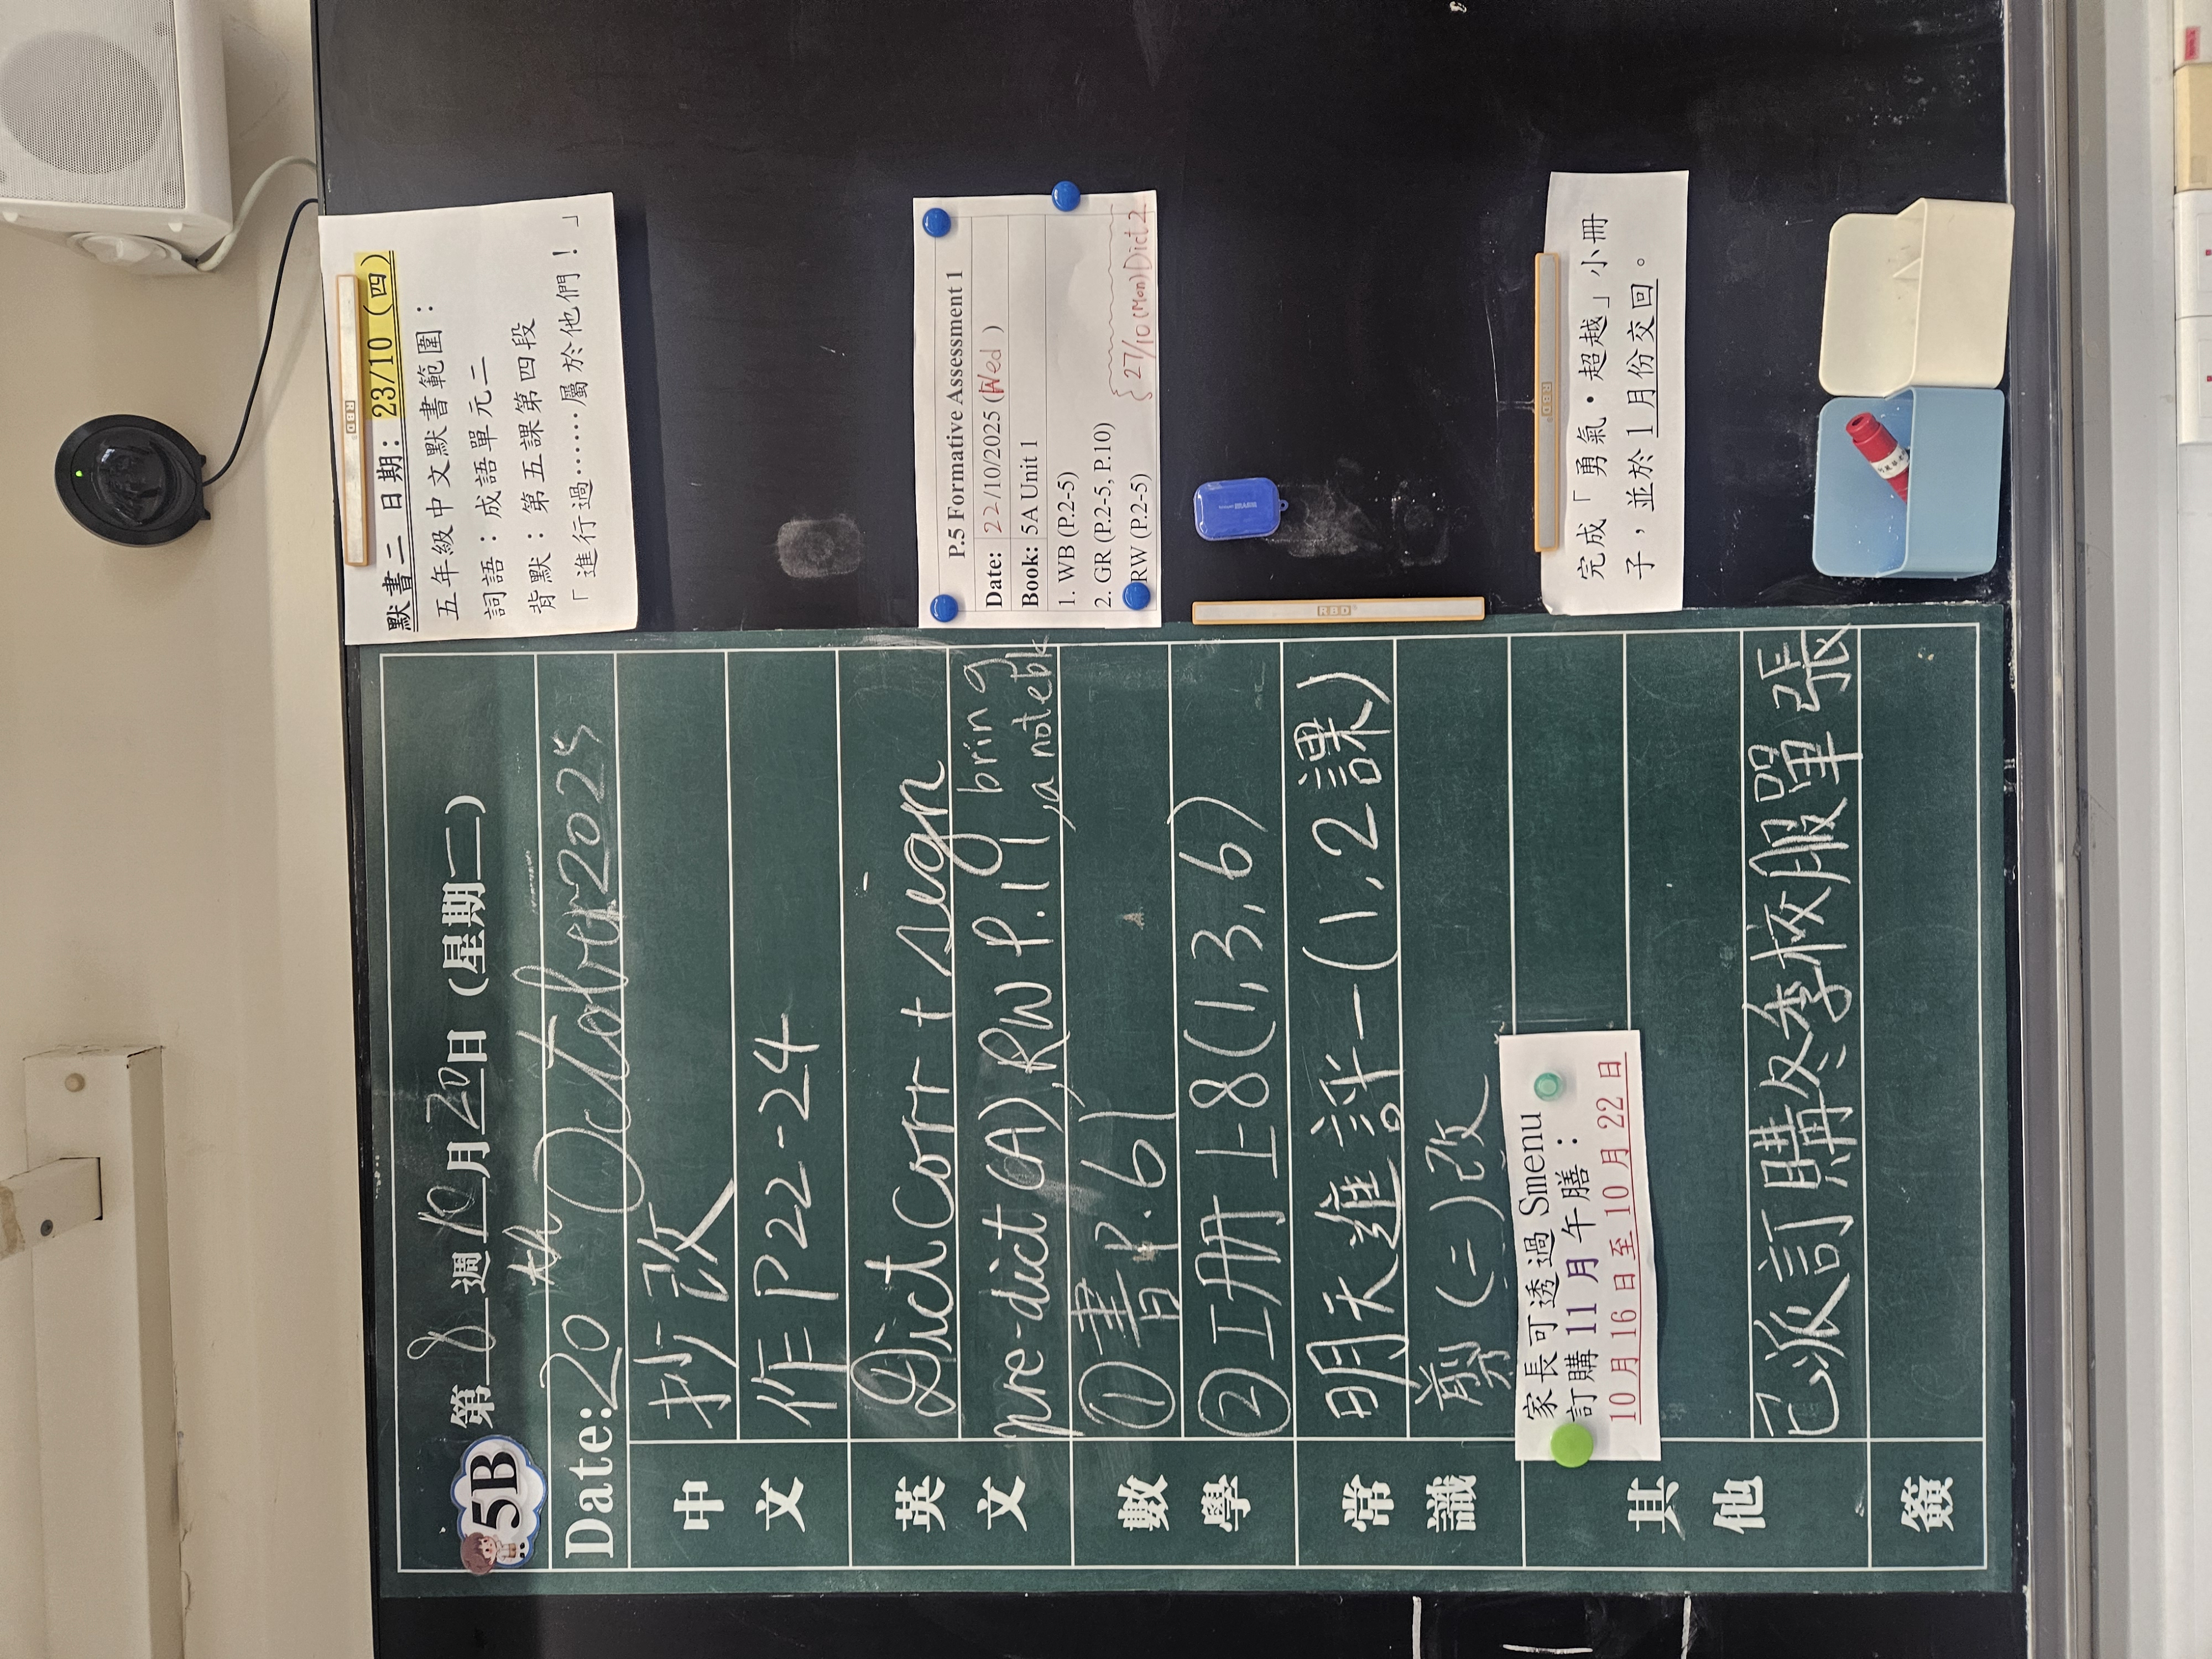 5B
第 8 週 10 月 20 日 (星期二)
Date: 20th October 2025
中文
抄改
作三 P22-24
英文
Dict Corr + sign
pre-dict (A), RW P.11, bring a notebk
數學
① 書P.61
② 工册上8(1,3,6)
常識
明天進評一(1,2課)
剪(二)改
其他
家長可透過 Smenu
訂購 11 月午膳：
10 月 16 日至 10 月 22 日
已派訂購冬季校服單張
簽
默書二 日期：23/10 (四)
五年級中文默書範圍：
詞語：成語單元二
背默：第五課第四段
「進行過……屬於他們！」
RBD
P.5 Formative Assessment 1
Date: 22/10/2025 (Wed)
Book: 5A Unit 1
1. WB (P.2-5)
2. GR (P.2-5, P.10)
RW (P.2-5)
27/10 (Mon) Dict 2
RBD
RBD
完成「勇氣・超越」小冊
子，並於 1 月份交回。